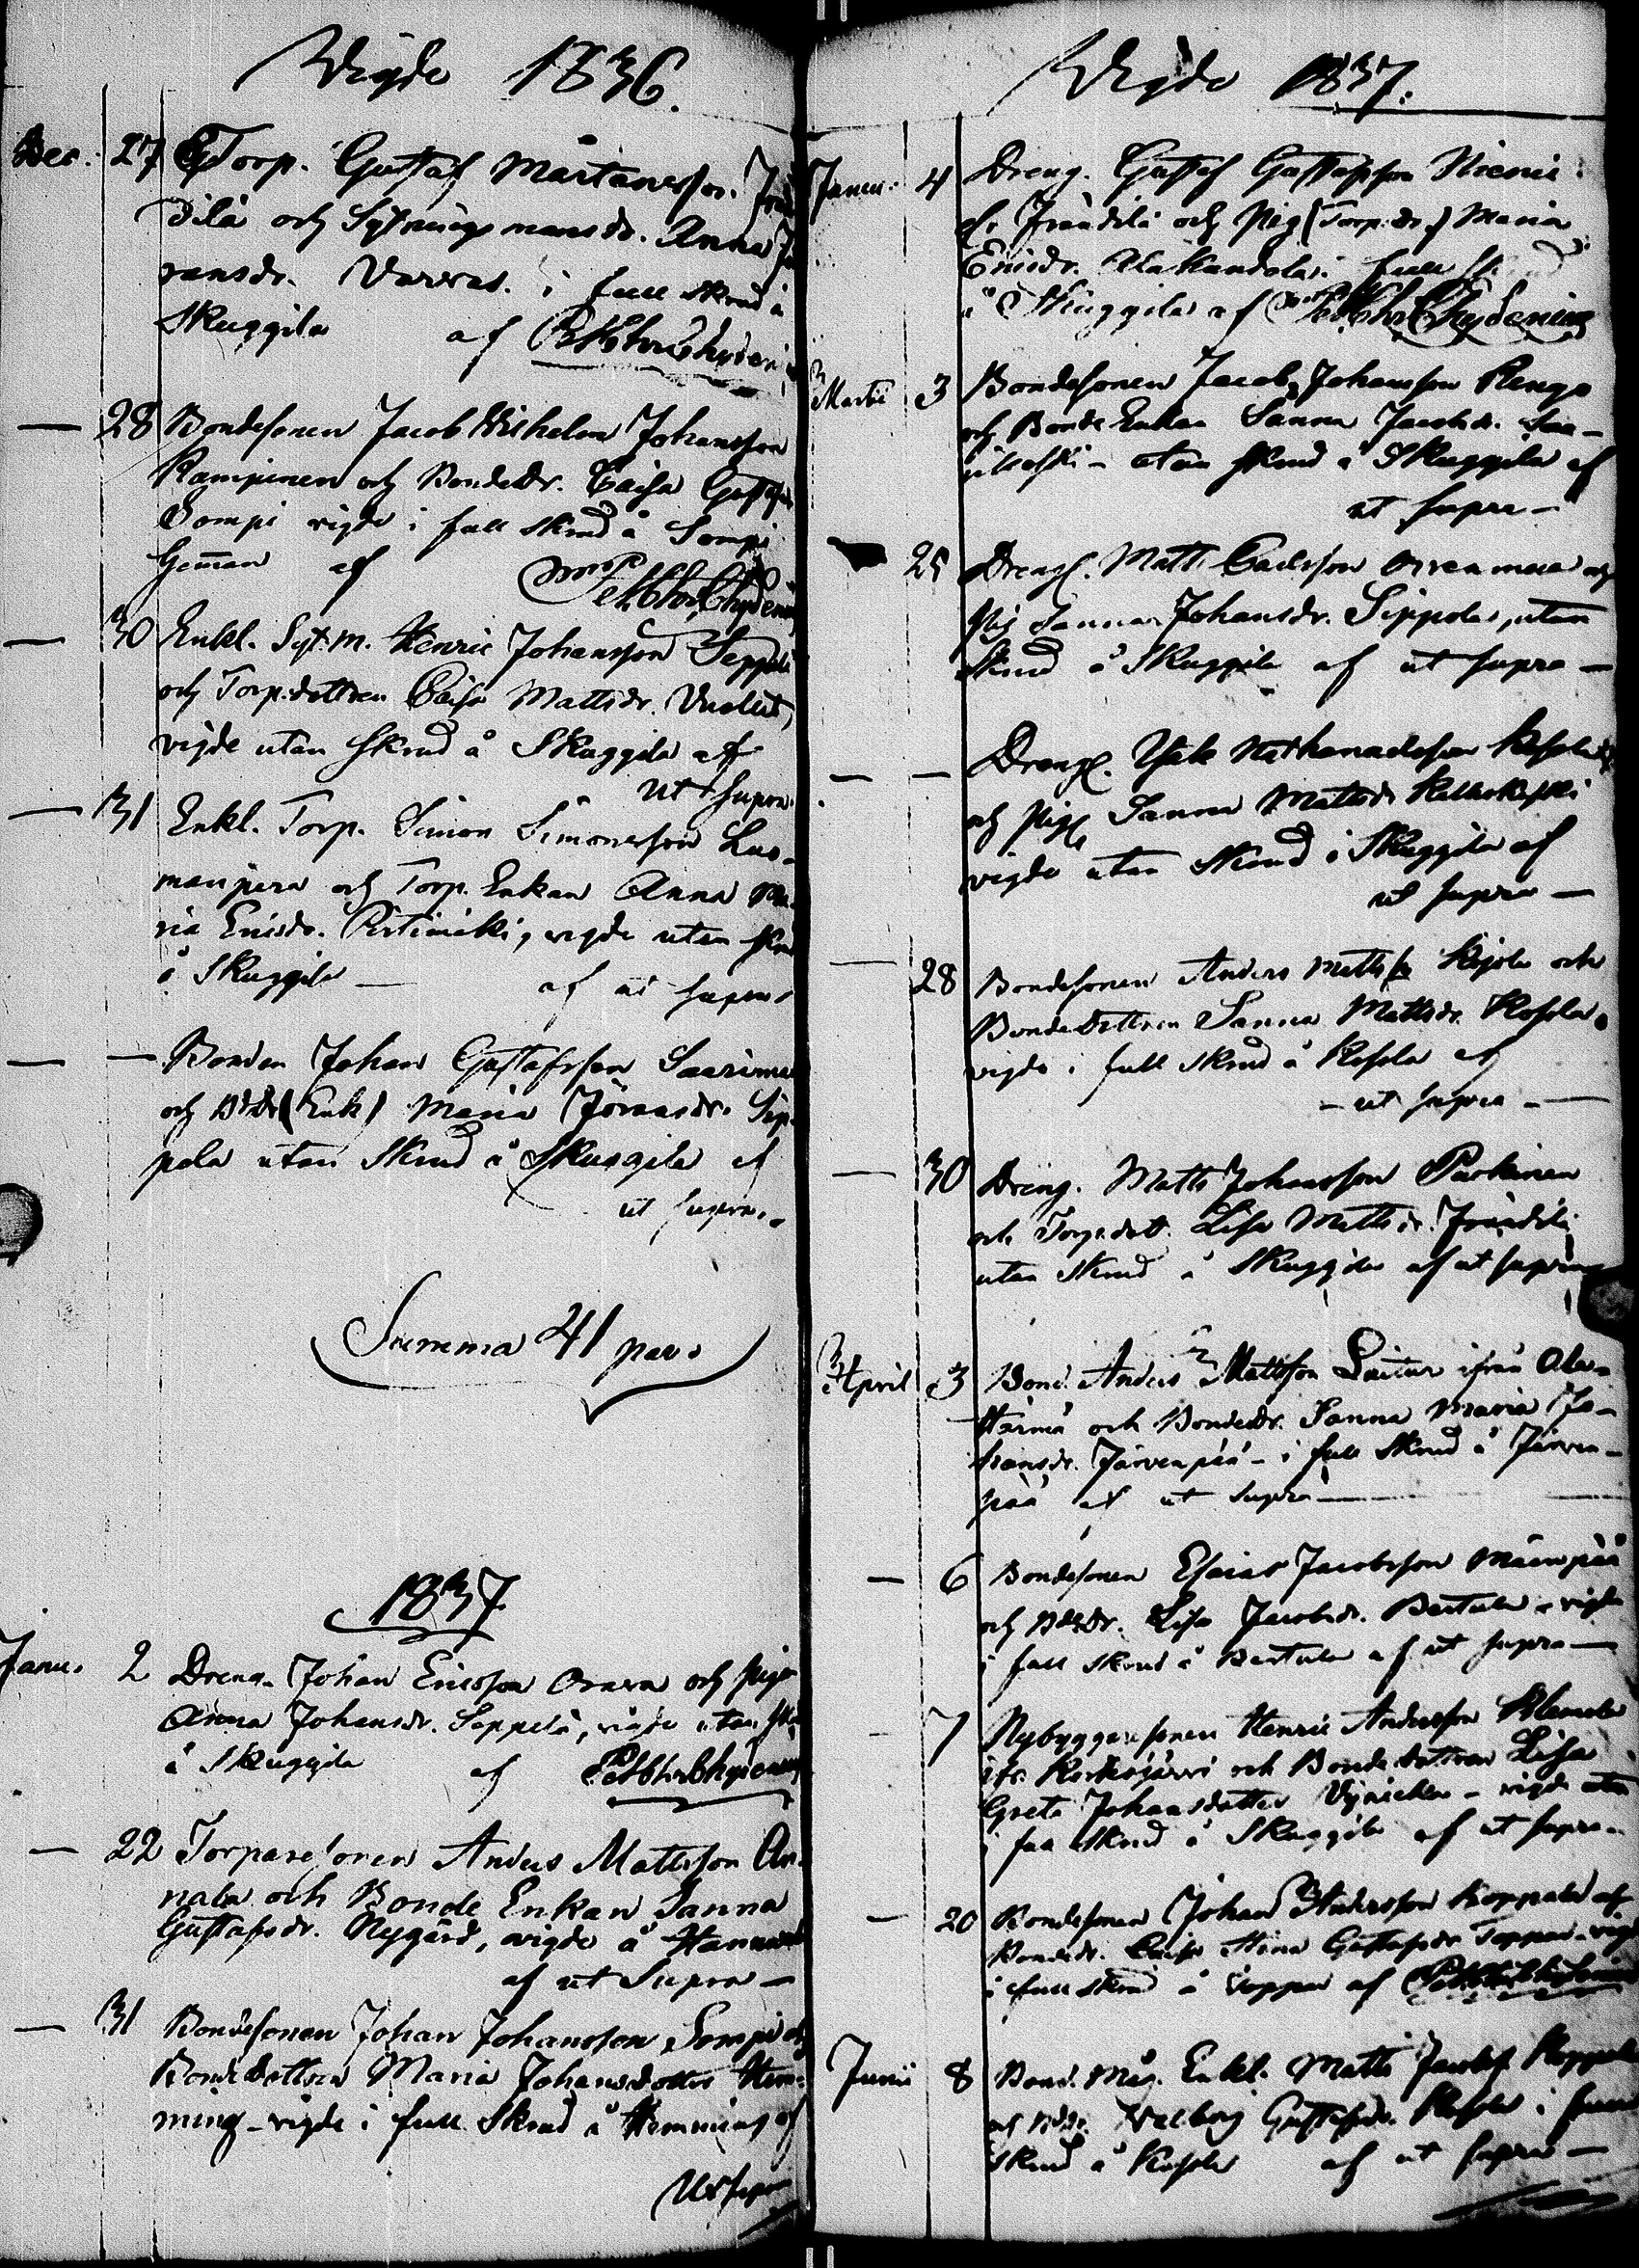 Vigde 1836.
Dec. 27 Torp. Gustaf Mårtansson
dilä och Sytningsmansdr. Anna
ransdr. Varras. i full skrud å
Skuggila af Pet. Chr. Chydenius
— 28 Bondesonen Jacob Wilhelm Johansson
Kampinen och Bondedr. Caisa Gustafs
Sompi vigde i full skrud å Sompi
Hemman af Pet. Chr. Chydenius
— 30 Enkl. Syt.m. Henric Johansson Seppelä
och Torp.dottren Caisa Mattsdr.
vigde utan skrud å Skuggila af
ut supra.
— 31 Enkl. Torp. Simon Simonsson Luo-
manpera och Torp. Enkan Anna Ma-
ria Ericsdr. Pirtimäki, vigde utan skrud
å Skuggila — af ut supra
— — Bonden Johan Gustafsson Saarima
och Bd.Dr (Enk) Maria Jöransdr. Sip-
pola utan skrud å Skuggila af
ut supra.
Summa 41 par.
1837
Janu. 2 Dreng. Johan Ericsson Orava och Pig.
Anna Johansdr. Seppelä, vigde utan skrud
å Skuggila af Pet. Chr. Chydenius
— 22 Torparesonen Anders Mattsson An-
nala och Bonde Enkan Sanna
Gustafsdr. Nygård, vigde å Hannuxel
af ut Supra —
— 31 Bondesonen Johan Johansson Sompi och
Bondedottren Maria Johansdotter Hem-
ming – vigde i full Skrud å Hemming af
Ut supra
Vigde 1837.
Janu. 4 Dreng. Gustaf Gustafsson Niemi
fr. Jrändilä och Pig (Torp.dr.) Maria
Ericsdr. Alakandola i full skrud
å Skuggila af Pet. Chr. Chydenius
Martii 3 Bondesonen Jacob Johansson Rengo
och Bonde Enkan Sanna Jacobsdr.
utan skrud å Skuggila af
ut supra —
25 Drengk. Matts Carlsson och
Pig Sanna Johansdr. Sippola, utan
Skrud å Skuggila af ut supra —
— — Drengk. Isak Nathanaelsson
och Pig Sanna Mattsdr.
vigde utan skrud å Skuggila af
ut supra —
— 28 Bondesonen Anders Mattss och
Bondedottren Sanna Mattsdr. Kosola,
vigde i full skrud å Kosola af
— ut supra —
— 30 Dreng. Matts Johansson Parkinen
och Torp.dott. Lisa Mattsdr. Jrändilä
utan skrud å Skuggila af ut supra
April 3 Bond. Anders Mattsson Luitur ifrån Ala-
Härmä och Bondedr. Sanna Maria Jo-
hansdr. Järvenpää – i full skrud å Järven-
pää af ut supra —
— 6 Bondesonen Esaias Jacobsson Mäenpää
och Bdedr. Lisa Jacobsdr. Bertula – vigde
i full skrud å Bertula af ut supra —
— 7 Nybyggaresonen Henric Andersson
ifr. Kortesjärvi och Bondedottren Lisa
Greta Johansdotter – vigde utan
skrud å Skuggila af ut supra.
— 20 Bondesonen Johan Andersson Koppala och
Bondedr. Caisa Stina Gustafsdr. Toppar – vigde
i full skrud å Toppar af Pet. Chr. Chydenius
Junii 8 Bond. Måg. Enkl. Matts Jacobss
och Bdedr. Walborg Gustafsdr. Kosola i full
skrud å Kosola af ut supra —